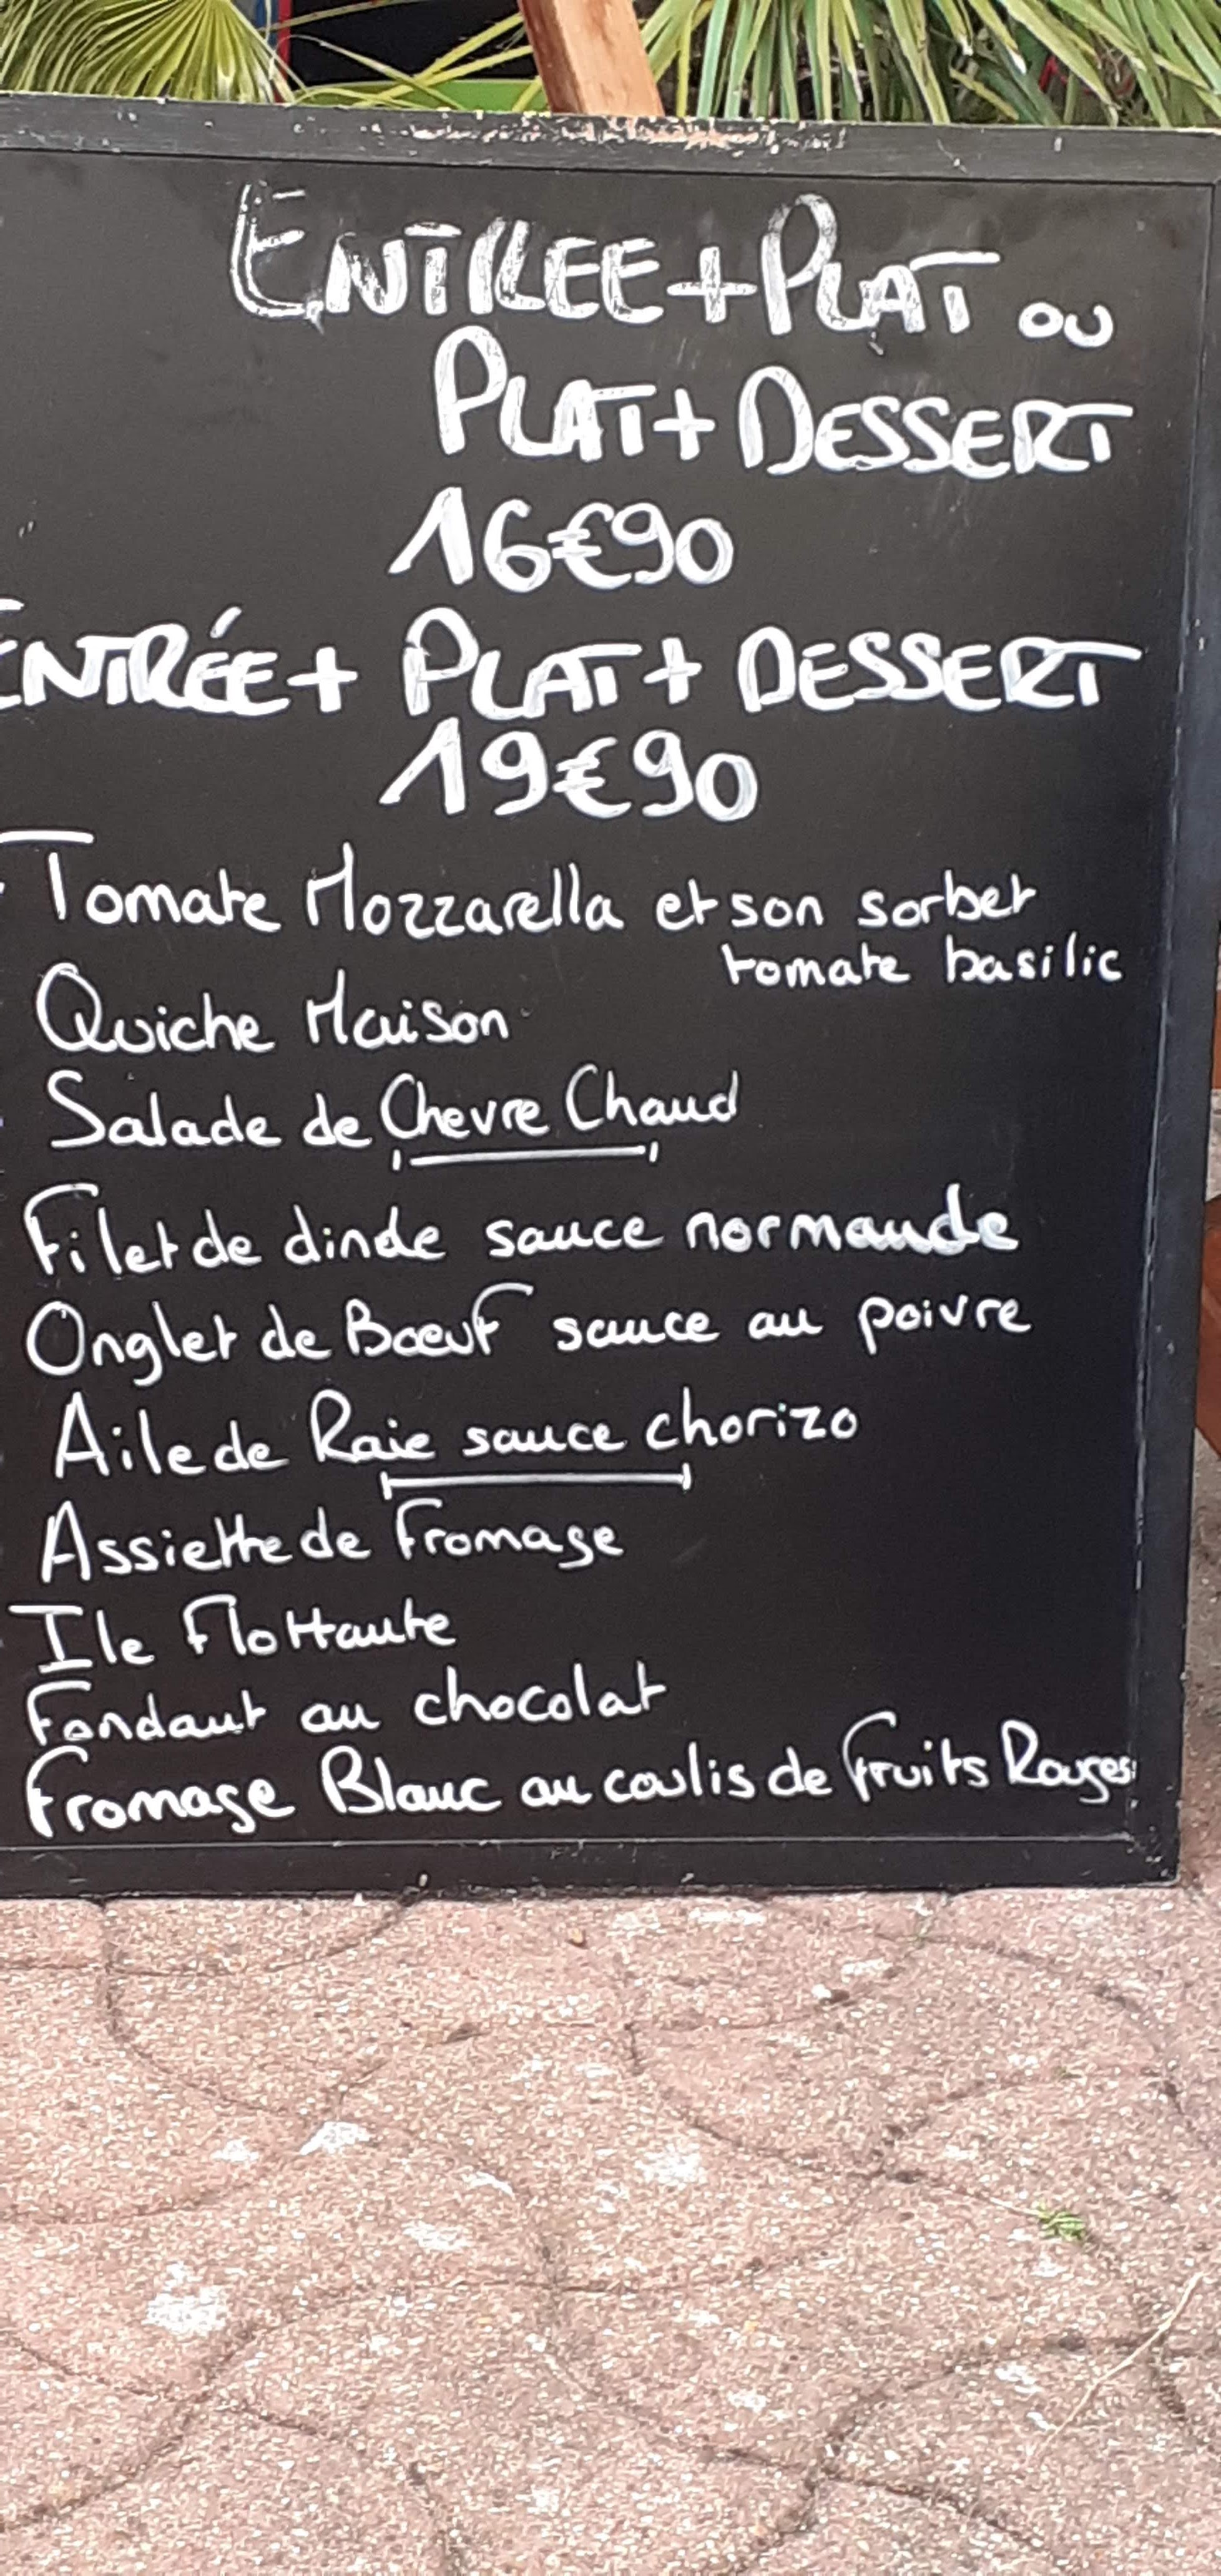 ENTREE + PLAT ou
PLAT + DESSERT
16€90
ENTRÉE + PLAT + DESSERT
19€90
Tomate Mozzarella et son sorbet
tomate basilic
Quiche Maison
Salade de Chevre Chaud
Filet de dinde sauce normande
Onglet de Bœuf sauce au poivre
Aile de Raie sauce chorizo
Assiette de Fromage
Ile Flottante
Fondant au chocolat
Fromage Blanc au coulis de Fruits Rouges